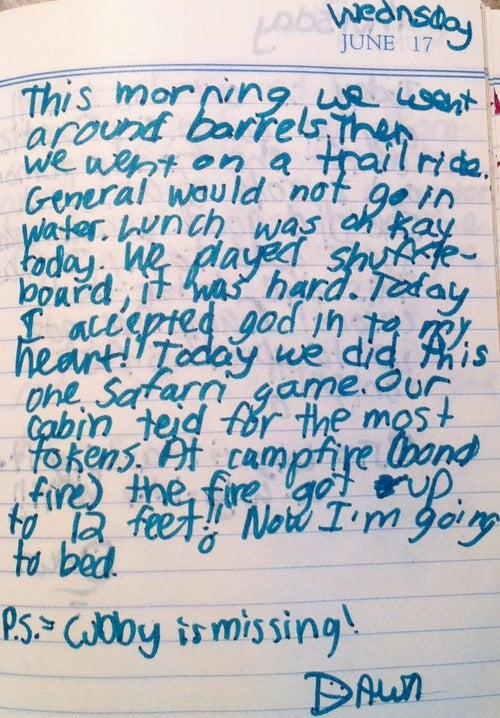 Wednsday
JUNE 17
This morning we went
around barrels, Then
we went on a trail ride.
General would not go in
water. Lunch was oh kay
today. We played shuffle-
board, it was hard. Today
I accepted god in to my
heart! Today we did this
one Safarri game. Our
cabin teid for the most
tokens. At campfire (bond
fire) the fire got up
to 12 feet!! Now I'm going
to bed.
P.S.= Cuoby is missing!
DAwn